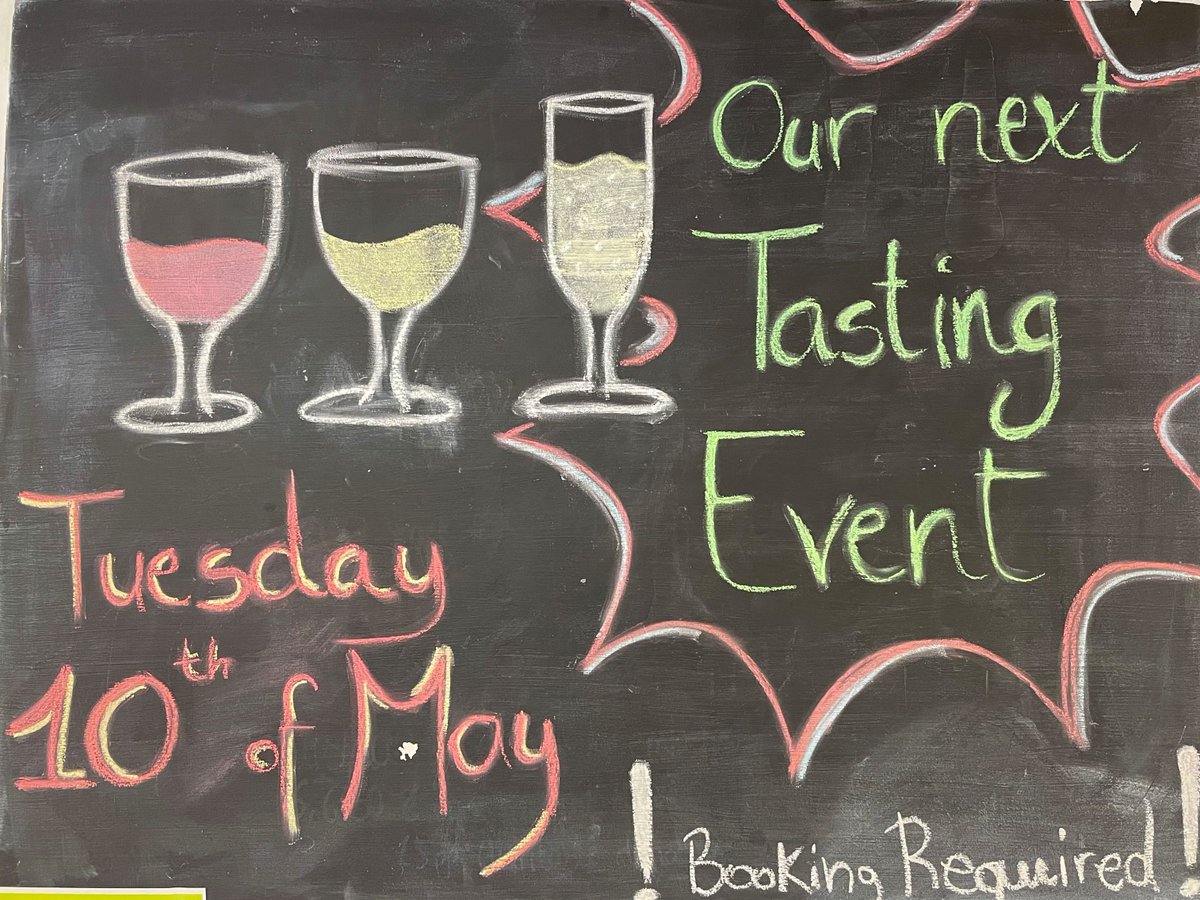 Our next
Tasting
Event
Tuesday
10th of May
! Booking Required !